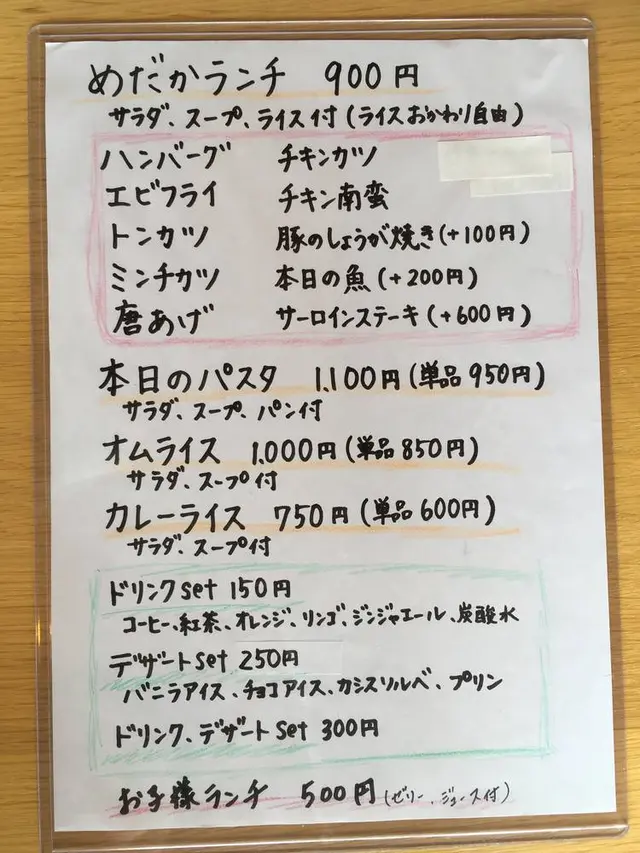 めだかランチ 900円
サラダ、スープ、ライス付(ライスおかわり自由)
ハンバーグ チキンカツ
エビフライ チキン南蛮
トンカツ 豚のしょうが焼き(+100円)
ミンチカツ 本日の魚(+200円)
唐あげ サーロインステーキ(+600円)
本日のパスタ 1,100円(単品950円)
サラダ、スープ、パン付
オムライス 1,000円(単品850円)
サラダ、スープ付
カレーライス 750円(単品600円)
サラダ、スープ付
ドリンクset 150円
コーヒー、紅茶、オレンジ、リンゴ、ジンジャエール、炭酸水
デザートset 250円
バニラアイス、チョコアイス、カシスソルベ、プリン
ドリンク、デザートset 300円
お子様ランチ 500円(ゼリー、ジュース付)